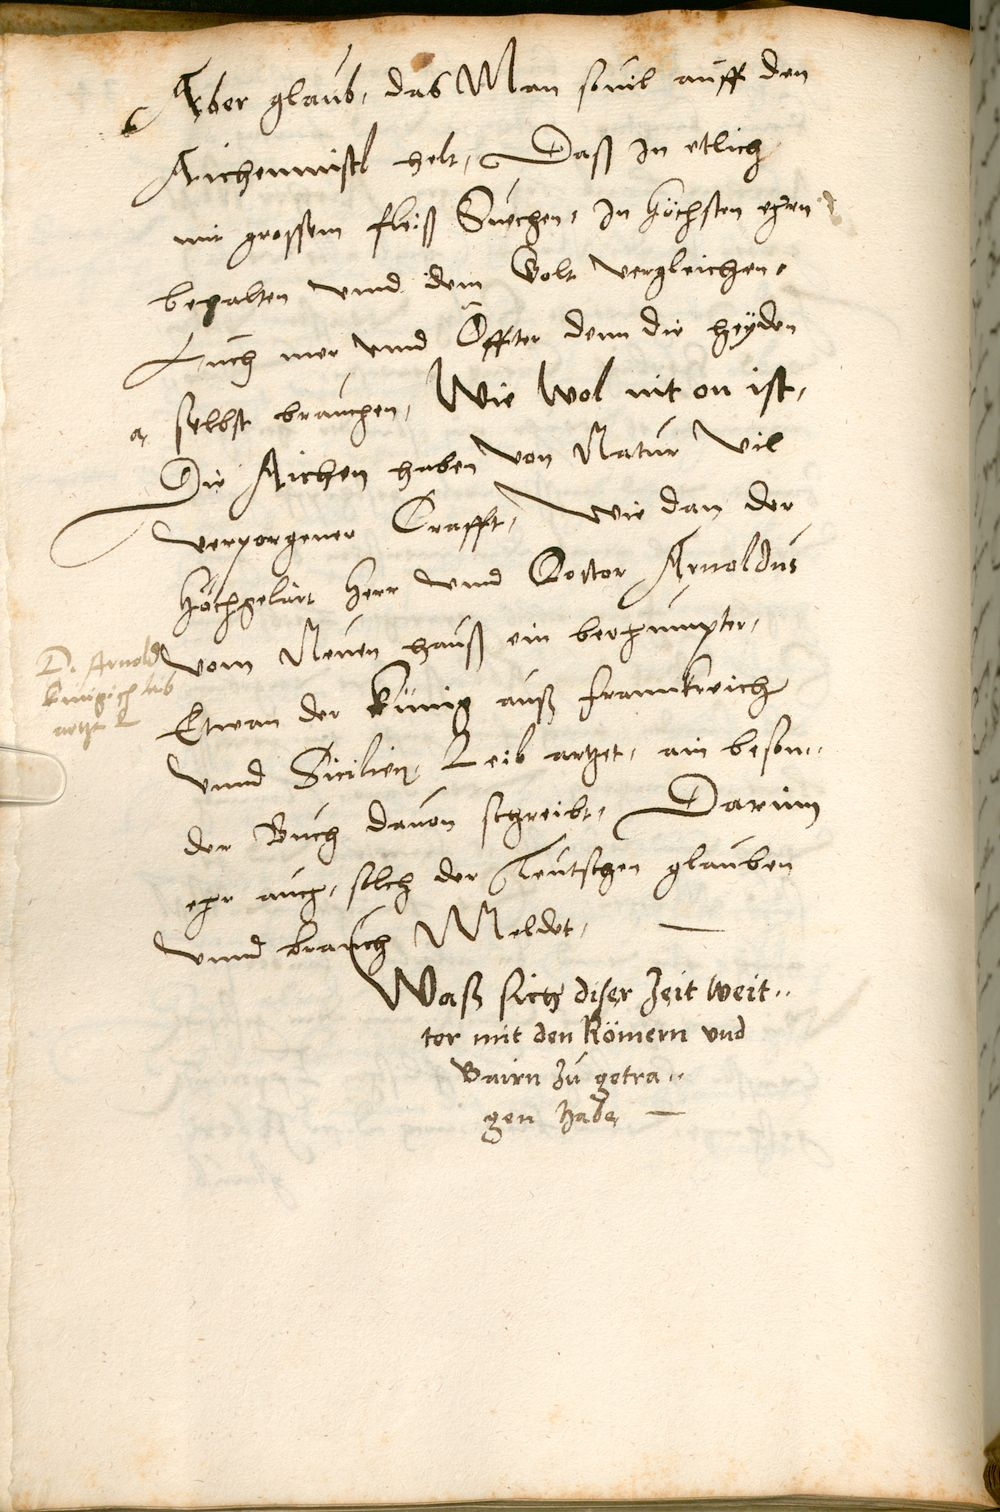 Aber glaub, das Man souil auff den
Aichenmistl helt, Daß In etlich
mit grossem fleiß Suechen, In höchsten ehren
behalten vnnd dem Golt vergleichen,
Auch mer vnnd Öffter denn die heyden
selbst brauchen, Wie Wol nit on ist,
Die Aichen haben von Natur vil
verporgener Crafft, wie dan der
Hochgelärt Herr vnnd Doctor Arnoldus
vom Neuen hauß ein berhuempter,
Etwan der künig auß franckreich
vnnd Sicilien, Leib artzet, ain beson„
der Buch dauon schreibt, Darinn
ehr auch, solch der Teutschen glauben
vnnd brauch Meldet, —
D. Arnold
künigisch leib
artzt
Waß sich diser Zeit weit„
ter mit den Römern vnd
Bairn Zu getra„
gen habe, —